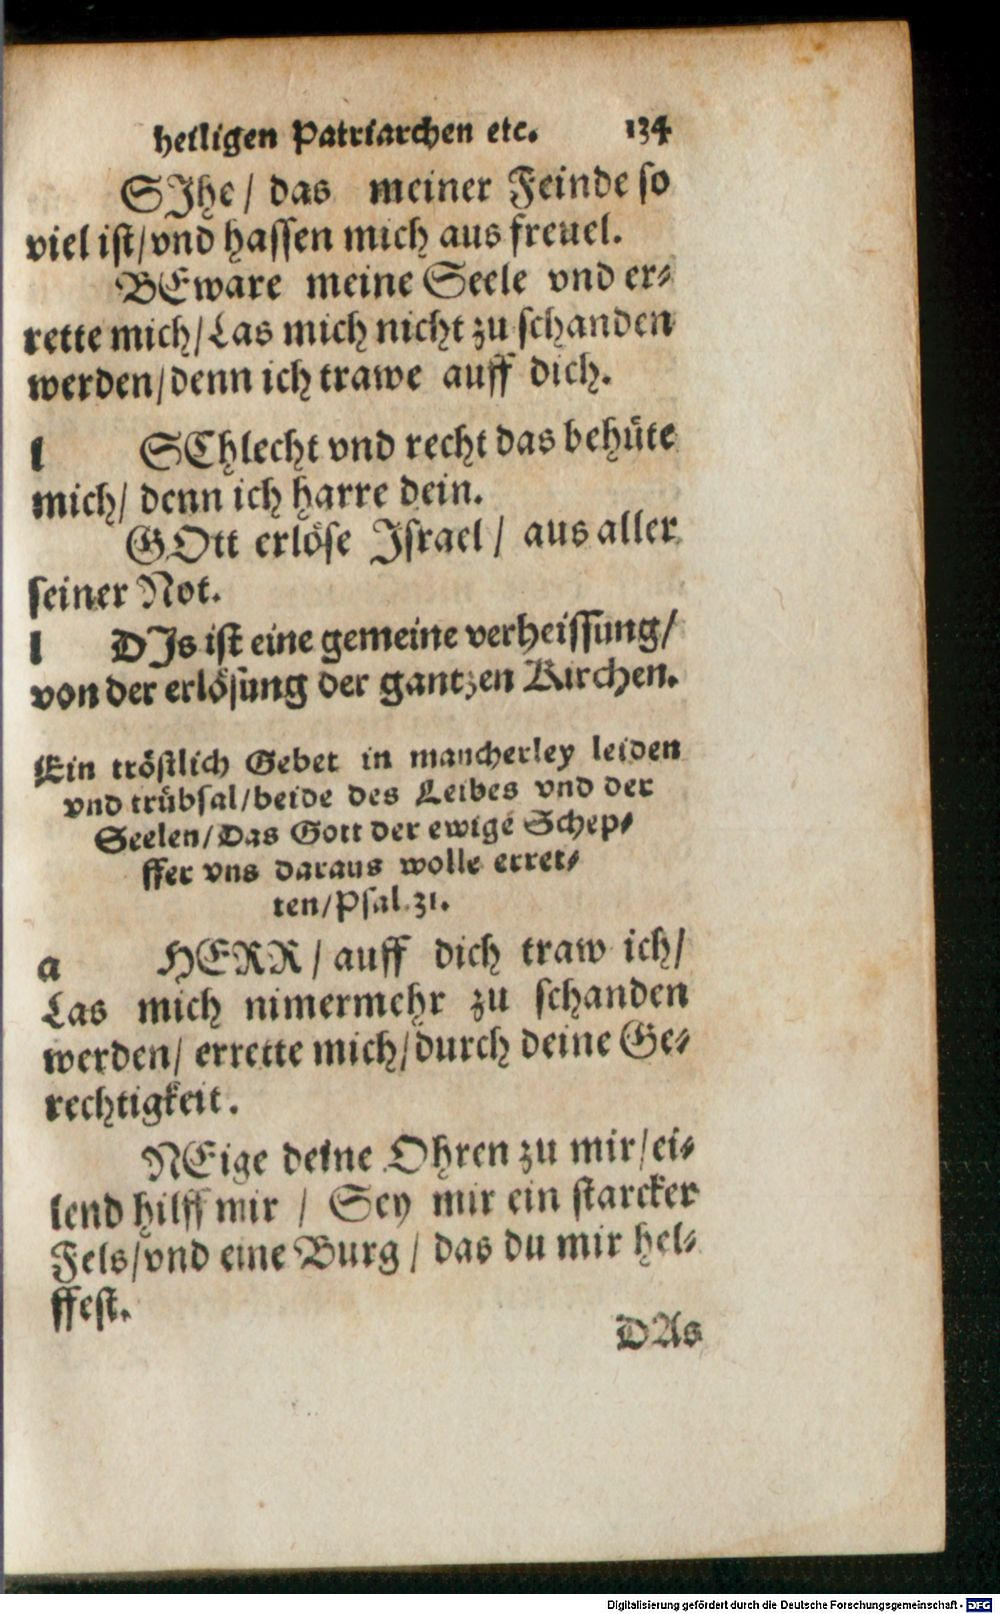 heiligen Patriarchen etc. 134
SJhe / das meiner Feinde so
viel ist / vnd hassen mich aus freuel.
BEware meine Seele vnd er⸗
rette mich / Las mich nicht zu schanden
werden / denn ich trawe auff dich.
l SChlecht vnd recht das behüte
mich / denn ich harre dein.
GOtt erlöse Jsrael / aus aller
seiner Not.
l DJs ist eine gemeine verheissung /
von der erlösung der gantzen Kirchen.
Ein tröstlich Gebet in mancherley leiden
vnd trübsal / beide des Leibes vnd der
Seelen / Das Gott der ewige Schep⸗
ffer vns daraus wolle erret⸗
ten / Psal. 31.
a HERR / auff dich traw ich /
Las mich nimermehr zu schanden
werden / errette mich / durch deine Ge⸗
rechtigkeit.
NEige deine Ohren zu mir / ei⸗
lend hilff mir / Sey mir ein starcker
Fels / vnd eine Burg / das du mir hel⸗
ffest.
DAs
Digitalisierung gefördert durch die Deutsche Forschungsgemeinschaft - DFG